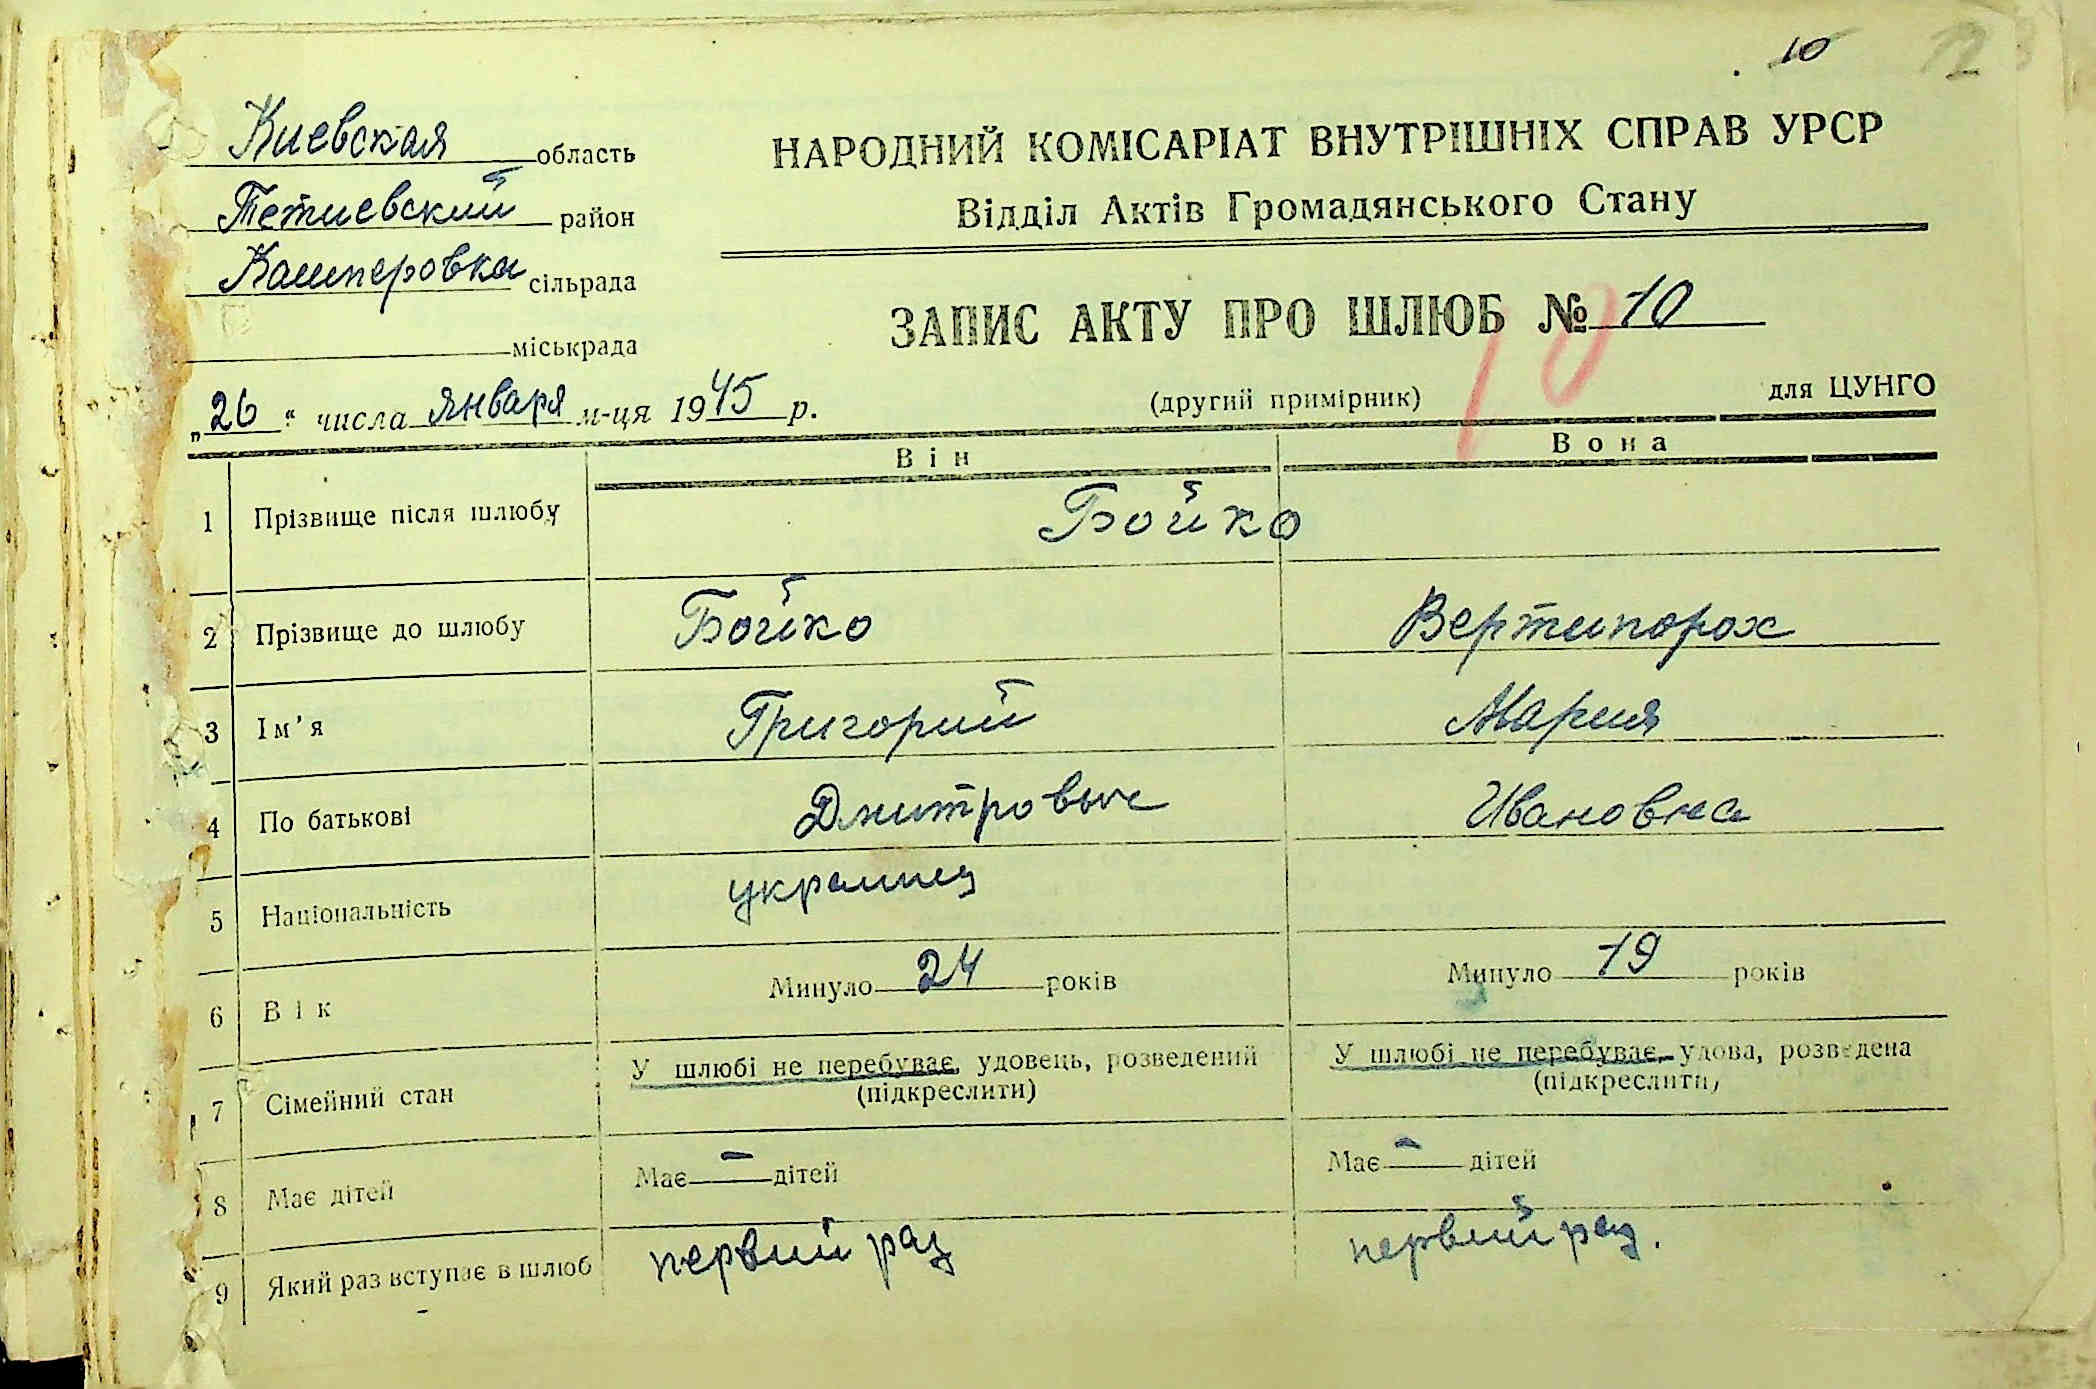 10
12
Киевская область
Тетиевский район
Кашперовка сільрада
міськрада
„26“ числа января м-ця 1945 р.
НАРОДНИЙ КОМІСАРІАТ ВНУТРІШНІХ СПРАВ УРСР
Відділ Актів Громадянського Стану
ЗАПИС АКТУ ПРО ШЛЮБ № 10
10
(другий примірник) для ЦУНГО
Він Вона
1 Прізвище після шлюбу Бойко
2 Прізвище до шлюбу Бойко Вертипорох
3 Ім'я Григорий Мария
4 По батькові Дмитрович Ивановна
5 Національність украинец
6 Вік Минуло 24 років Минуло 19 років
7 Сімейний стан У шлюбі не перебуває, удовець, розведений У шлюбі не перебуває, удова, розведена
(підкреслити) (підкреслити)
8 Має дітей Має — дітей Має — дітей
9 Який раз вступає в шлюб первий раз первий раз.